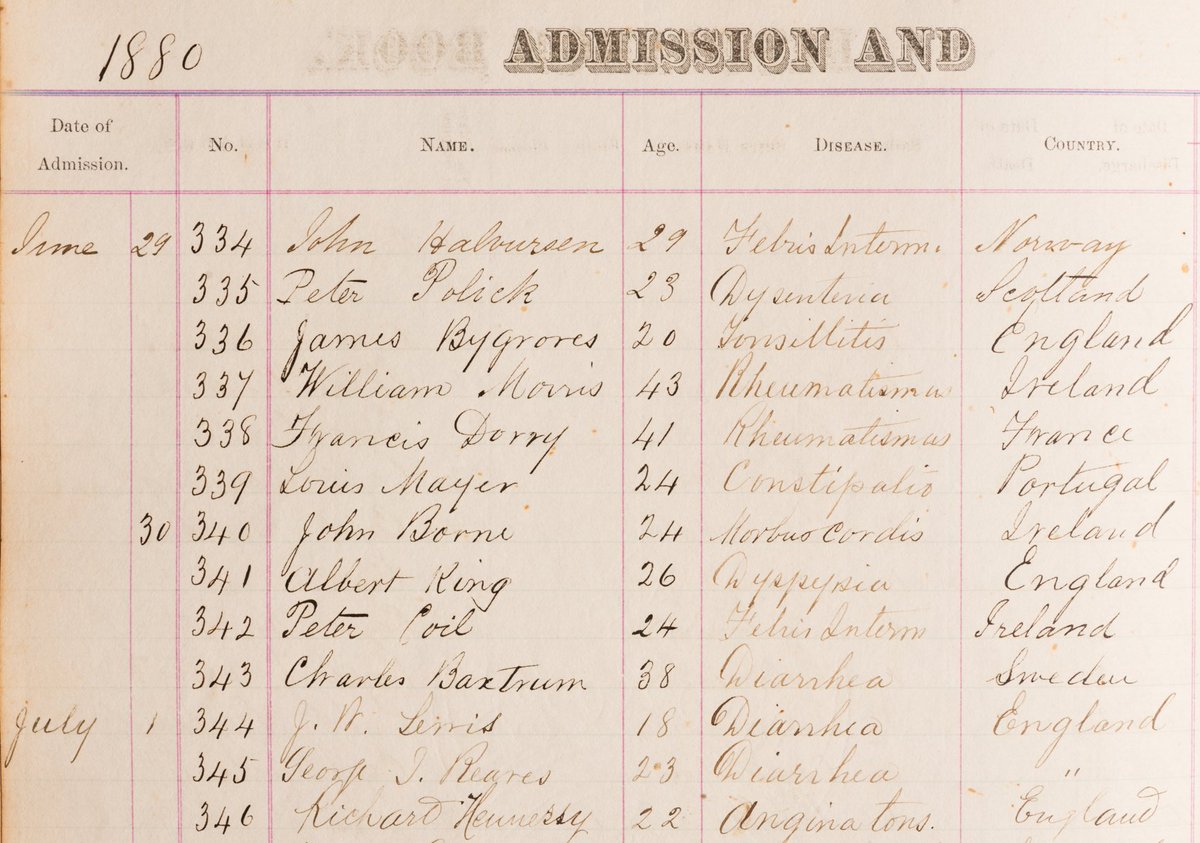 1880 ADMISSION AND
Date of Admission. No. NAME. Age. DISEASE. COUNTRY.
June 29 334 John Halvursen 29 Febris Interm. Norway
335 Peter Polick 23 Dysenteria Scotland
336 James Bygroves 20 Tonsillitis England
337 William Morris 43 Rheumatismus Ireland
338 Francis Dorry 41 Rheumatismus France
339 Louis Mayer 24 Constipatio Portugal
30 340 John Borne 24 Morbus Cordis Ireland
341 Albert King 26 Dyspysia England
342 Peter Coil 24 Febris Interm Ireland
343 Charles Baxtrum 38 Diarrhea Sweden
July 1 344 J. W. Lewis 18 Diarrhea England
345 George J. Reaves 23 Diarrhea "
346 Richard Hennessy 22 Angina tons. England